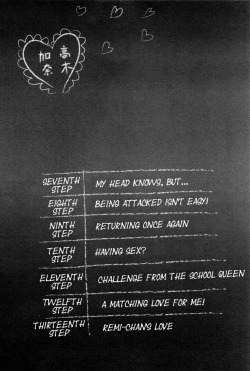 高木
加奈
SEVENTH STEP MY HEAD KNOWS, BUT...
EIGHTH STEP BEING ATTACKED ISN'T EASY!
NINTH STEP RETURNING ONCE AGAIN
TENTH STEP HAVING SEX?
ELEVENTH STEP CHALLENGE FROM THE SCHOOL QUEEN
TWELFTH STEP A MATCHING LOVE FOR ME!
THIRTEENTH STEP REMI-CHAN'S LOVE